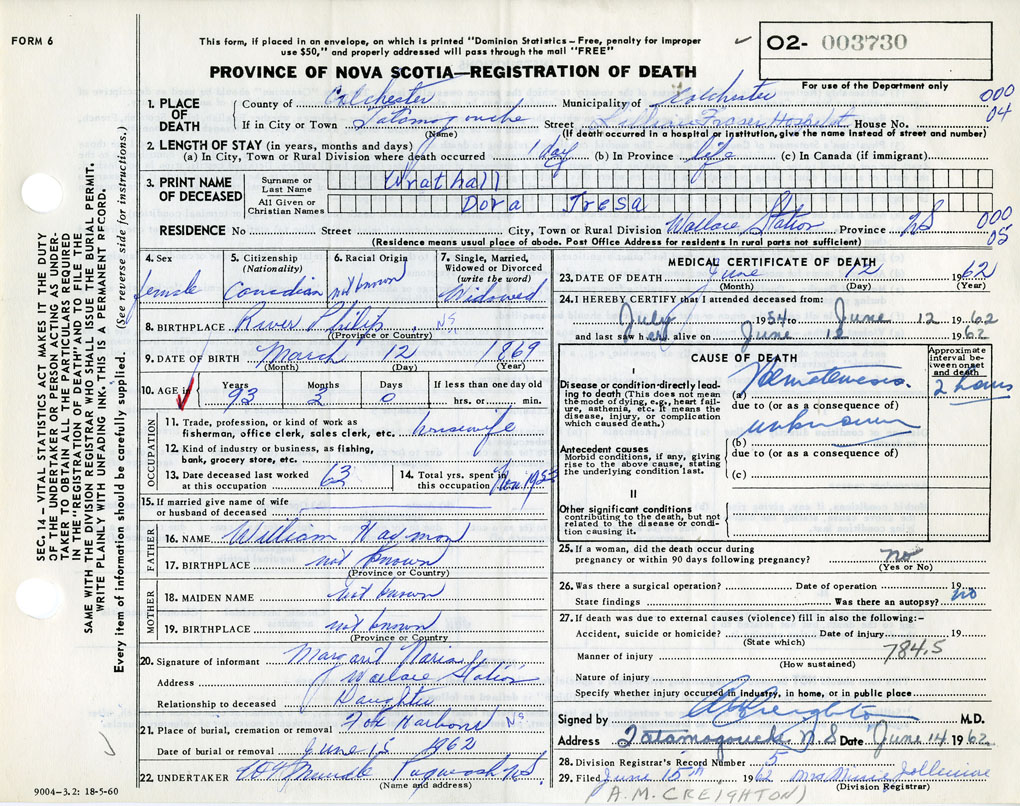 FORM 6
This form, if placed in an envelope, on which is printed "Dominion Statistics – Free, penalty for improper
use $50," and properly addressed will pass through the mail "FREE"
O2- 003730
For use of the Department only
PROVINCE OF NOVA SCOTIA—REGISTRATION OF DEATH
000
04
SEC. 14 – VITAL STATISTICS ACT MAKES IT THE DUTY
OF THE UNDERTAKER OR PERSON ACTING AS UNDER-
TAKER TO OBTAIN ALL THE PARTICULARS REQUIRED
IN THE "REGISTRATION OF DEATH" AND TO FILE THE
SAME WITH THE DIVISION REGISTRAR WHO SHALL ISSUE THE BURIAL PERMIT.
WRITE PLAINLY WITH UNFADING INK. THIS IS A PERMANENT RECORD.
Every item of information should be carefully supplied. (See reverse side for instructions.)
1. PLACE OF DEATH County of Colchester Municipality of Colchester
If in City or Town Tatamagouche Street Lillian Fraser Hospital House No.
(Name) (If death occurred in a hospital or institution, give the name instead of street and number)
2. LENGTH OF STAY (in years, months and days)
(a) In City, Town or Rural Division where death occurred 1 day (b) In Province life (c) In Canada (if immigrant)
3. PRINT NAME OF DECEASED Surname or Last Name Wrathall
All Given or Christian Names Dora Tresa
RESIDENCE No Street City, Town or Rural Division Wallace Station Province NS
000
05
(Residence means usual place of abode. Post Office Address for residents in rural parts not sufficient)
4. Sex female
5. Citizenship (Nationality) Canadian
6. Racial Origin not known
7. Single, Married, Widowed or Divorced (write the word) Widowed
8. BIRTHPLACE River Philip NS
(Province or Country)
9. DATE OF BIRTH March 12 1869
(Month) (Day) (Year)
10. AGE in Years 93 Months 3 Days 0 If less than one day old hrs. or min.
OCCUPATION
11. Trade, profession, or kind of work as fisherman, office clerk, sales clerk, etc. housewife
12. Kind of industry or business, as fishing, bank, grocery store, etc.
13. Date deceased last worked at this occupation 63
14. Total yrs. spent in this occupation Nov. 1953
15. If married give name of wife or husband of deceased
FATHER
16. NAME William Haymon
17. BIRTHPLACE not known
(Province or Country)
MOTHER
18. MAIDEN NAME not known
19. BIRTHPLACE not known
(Province or Country)
20. Signature of informant Margaret
Address Wallace Station
Relationship to deceased Daughter
21. Place of burial, cremation or removal Fox Harbour NS
Date of burial or removal June 15 1962
22. UNDERTAKER Pugwash NS
(Name and address)
9004-3.2: 18-5-60
MEDICAL CERTIFICATE OF DEATH
23. DATE OF DEATH June 12 1962
(Month) (Day) (Year)
24. I HEREBY CERTIFY that I attended deceased from:
July 1954 to June 12 1962
and last saw her alive on June 12 1962
CAUSE OF DEATH
Approximate interval between onset and death
I
Disease or condition directly leading to death (This does not mean the mode of dying, e.g., heart failure, asthenia, etc. It means the disease, injury, or complication which caused death.)
(a) Hematemesis. 2 hours
due to (or as a consequence of)
unknown
(b)
due to (or as a consequence of)
Antecedent causes
Morbid conditions, if any, giving rise to the above cause, stating the underlying condition last.
(c)
II
Other significant conditions
contributing to the death, but not related to the disease or condition causing it.
25. If a woman, did the death occur during pregnancy or within 90 days following pregnancy? no
(Yes or No)
26. Was there a surgical operation? Date of operation 19
State findings Was there an autopsy? no
27. If death was due to external causes (violence) fill in also the following:–
Accident, suicide or homicide? Date of injury 19
(State which)
Manner of injury 784.5
(How sustained)
Nature of injury
Specify whether injury occurred in industry, in home, or in public place
Signed by AM Creighton M.D.
Address Tatamagouche N S Date June 14 1962
28. Division Registrar's Record Number 5
29. Filed June 15th 1962 Mrs
(Division Registrar)
(A.M. CREIGHTON)